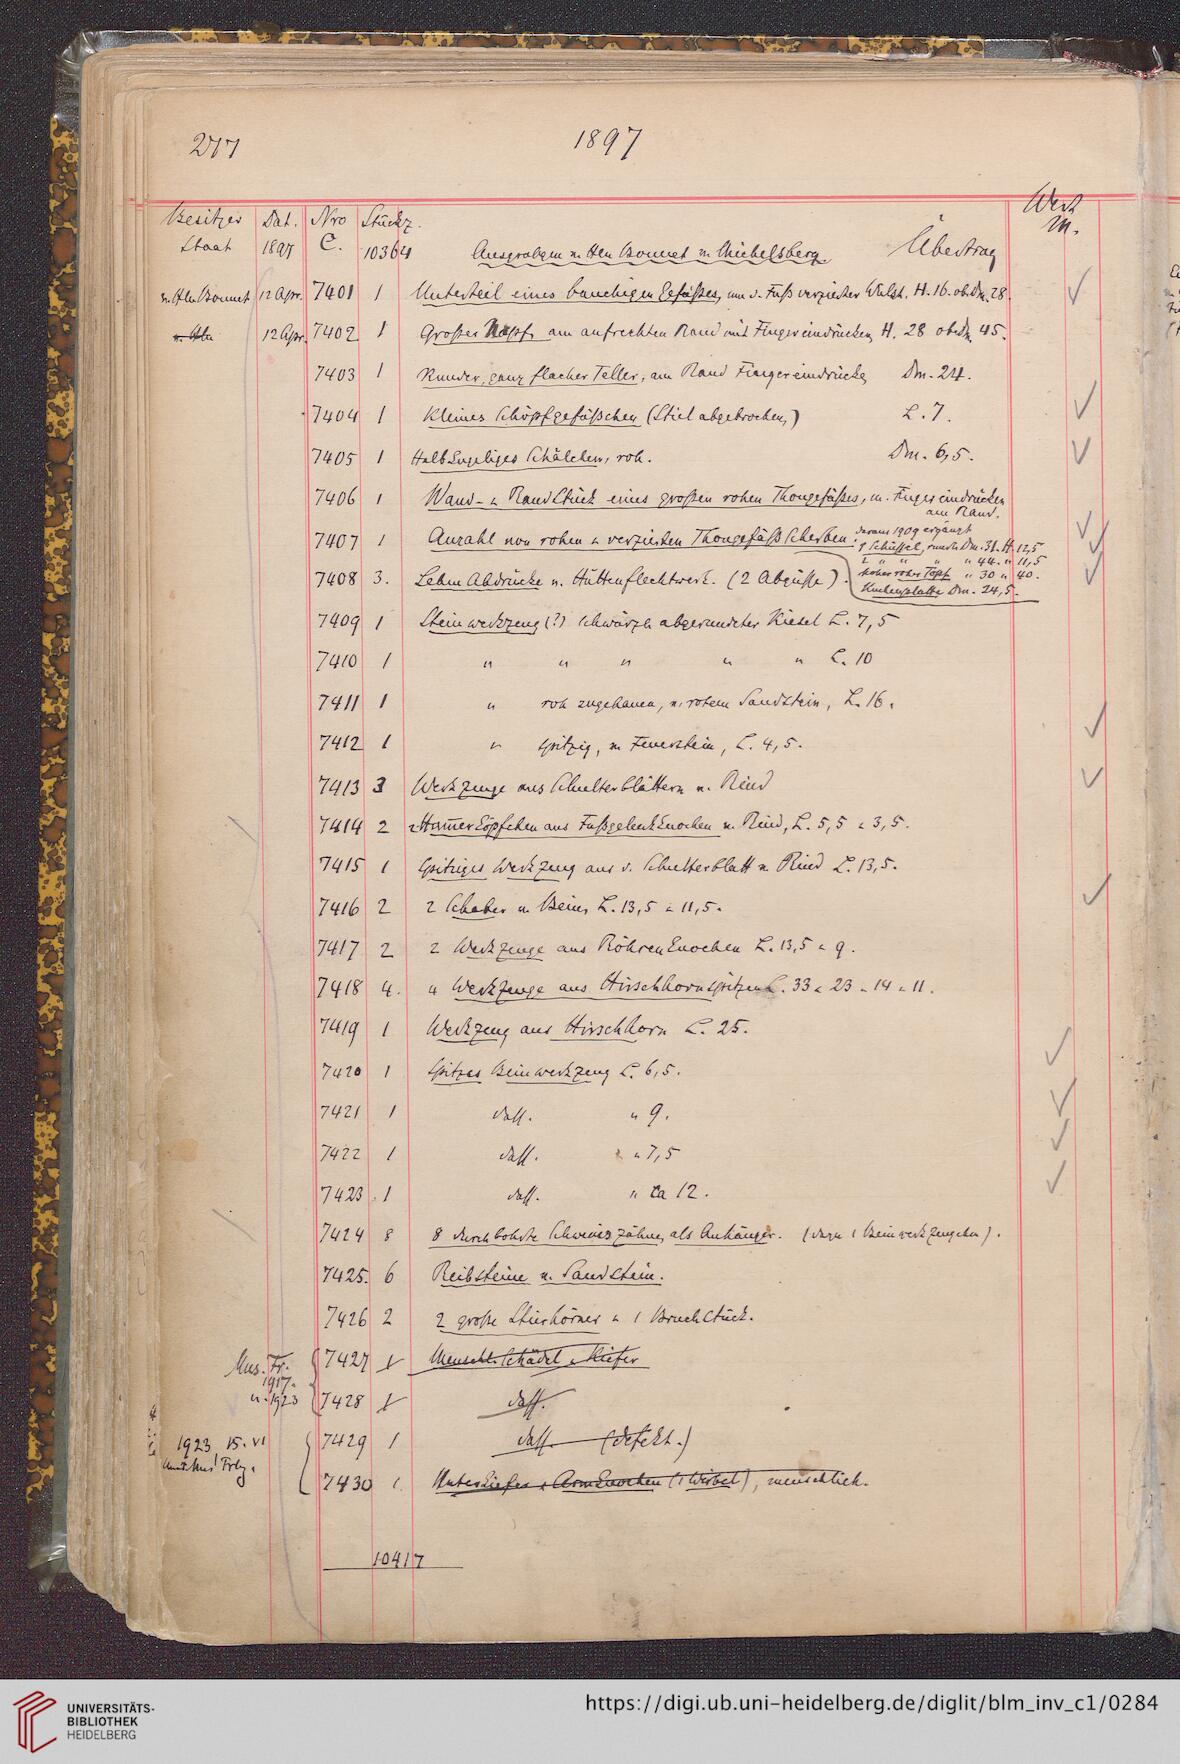 277
1897
Besitzer Dat. Nro Stückz. Wert
Staat 1897 C. 10364 Ausgraben v. Hrn Bonnet v. Michelsberg. Übertrag M.
v. Hrn Bonnet 12 Apr. 7401 1 Unterteil eines bauchigen Gefäßes, um d. Fuß verzierter Wulst. H. 16. ob. Dm. 28.
v. Hrn 12 Apr. 7402 1 Großer Napf am aufrechten Rand mit Fingereindrücken H. 28 ob. Dm. 45.
7403 1 Runder, ganz flacher Teller, am Rand Fingereindrücke Dm. 24.
7404 1 Kleines Schöpfgefäßchen (Stiel abgebrochen) L. 7.
7405 1 Halbkugeliges Schälchen, roh. Dm. 6,5.
7406 1 Wand- u Randstück eines großen rohen Thongefäßes, m. Fingereindrücken
am Rand.
7407 1 Anzahl von rohen u verzierten Thongefäß Scherben. daraus 1909 ergänzt
1 Schüssel, rund Dm. 31. H. 12,5
2 " " " " 44. " 11,5
7408 3. Lehm Abdrücke v. Hüttenflechtwerk. (2 Abgüsse). hoher roher Topf " 30 " 40.
Kuchenplatte Dm. 24,5.
7409 1 Steinwerkzeug (?) schwärzl. abgerundeter Kiesel L. 7,5
7410 1 " " " " " L. 10
7411 1 " roh zugehauen, v. rotem Sandstein, L. 16.
7412 1 " spitzig, v. Feuerstein, L. 4,5.
7413 3 Werkzeuge aus Schulterblättern v. Rind
7414 2 2 Hamerköpfchen aus Fußgelenkknochen v. Rind, L. 5,5 u 3,5.
7415 1 Spitziges Werkzeug aus d. Schulterblatt v. Rind L. 13,5.
7416 2 2 Schaber v. Bein, L. 13,5 u 11,5.
7417 2 2 Werkzeuge aus Röhrenknochen L. 13,5 u 9.
7418 4. 4 Werkzeuge aus Hirschhornspitzen L. 33 u 23 u 14 u 11.
7419 1 Werkzeug aus Hirschhorn L. 25.
7420 1 Spitzes Beinwerkzeug L. 6,5.
7421 1 dass. " 9.
7422 1 dass. " 7,5
7423 1 dass. " ca 12.
7424 8 8 durchbohrte Schweinszähne, als Anhänger. (dazu 1 Beinwerkzeugchen).
7425. 6 Reibsteine v. Sandstein.
7426 2 2 große Stierhörner u 1 Bruchstück.
Mus. Fr. 7427 1 Menschl. Schädel u Kiefer
1917.
u. 1923 7428 1 dass.
1923 15. VI 7429 1 dass. (defekt.)
Frbg. 7430 1 Unterkiefer u Armknochen (1 Wirbel), menschlich.
10417
UNIVERSITÄTS-
BIBLIOTHEK
HEIDELBERG
https://digi.ub.uni-heidelberg.de/diglit/blm_inv_c1/0284